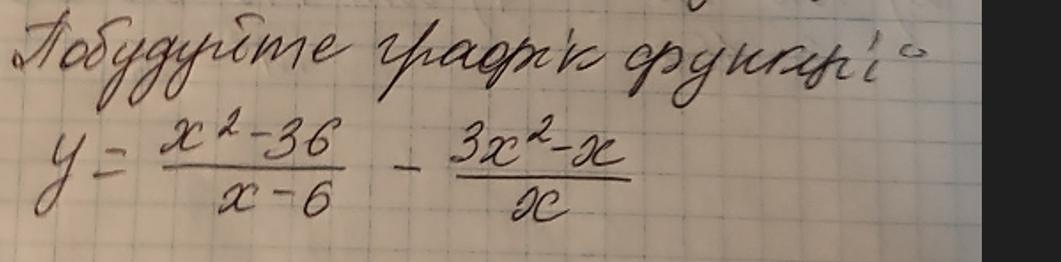 Побудуйте графік функції:
y = \frac{x^2-36}{x-6} - \frac{3x^2-x}{x}